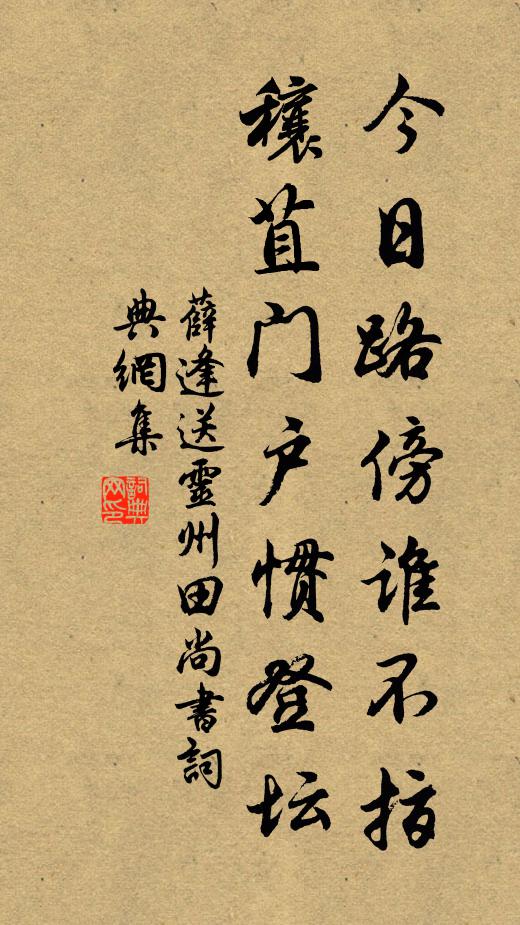 今日路傍谁不指
穰苴门户惯登坛
薛逢送靈州田尚書詞
典網集
詞典
网印